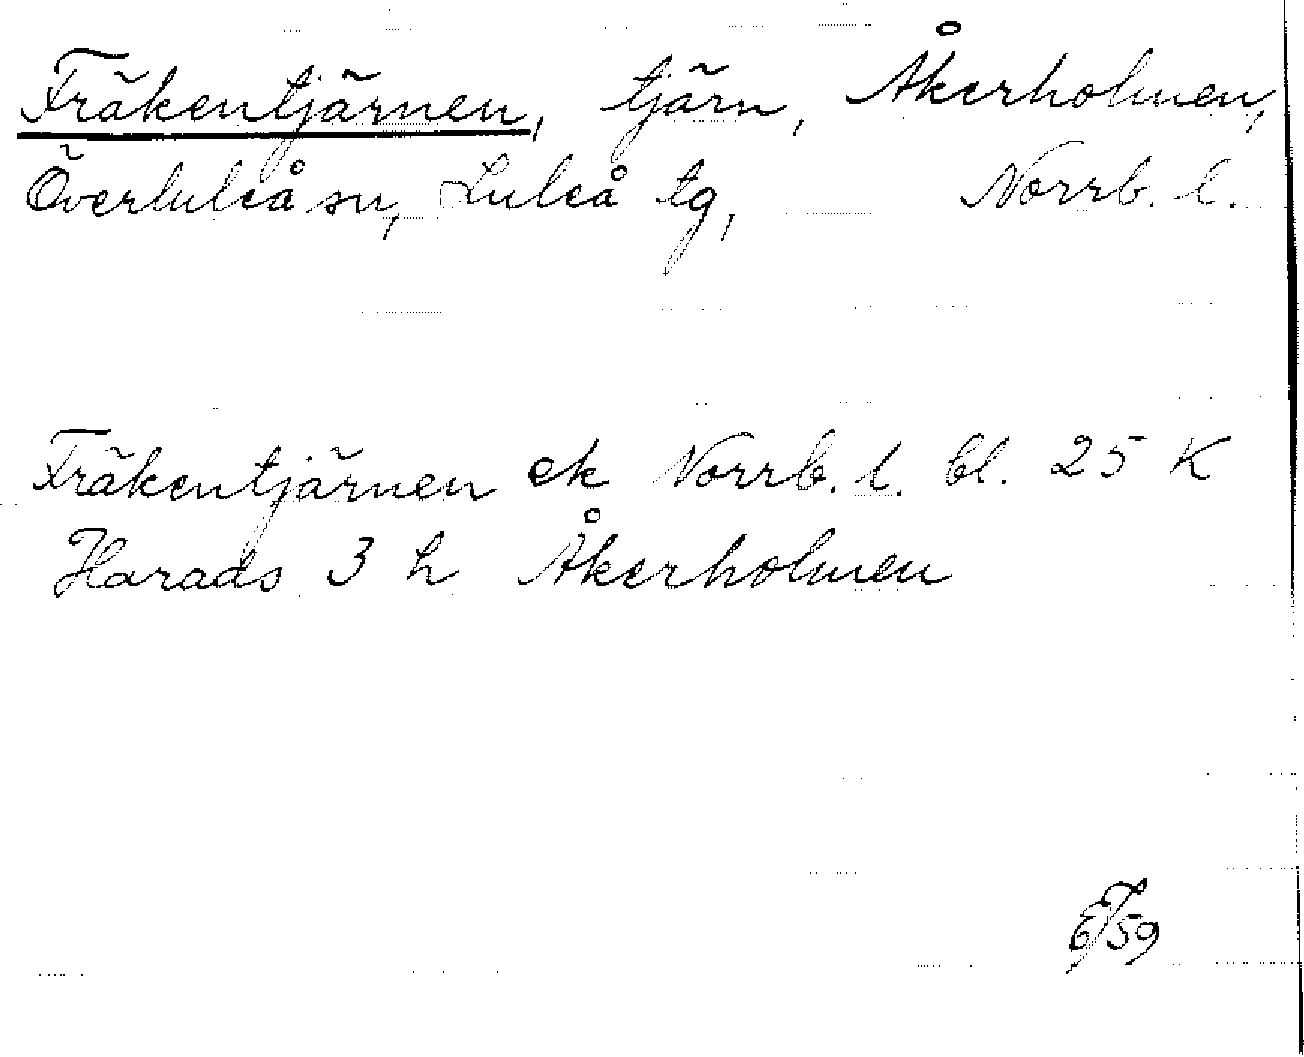 Fräkentjärnen, tjärn, Åkerholmen,
Överluleå sn, Luleå tg, Norrb. l.
Fräkentjärnen ek Norrb. l. bl. 25 K
Harads 3 h Åkerholmen
ET 59